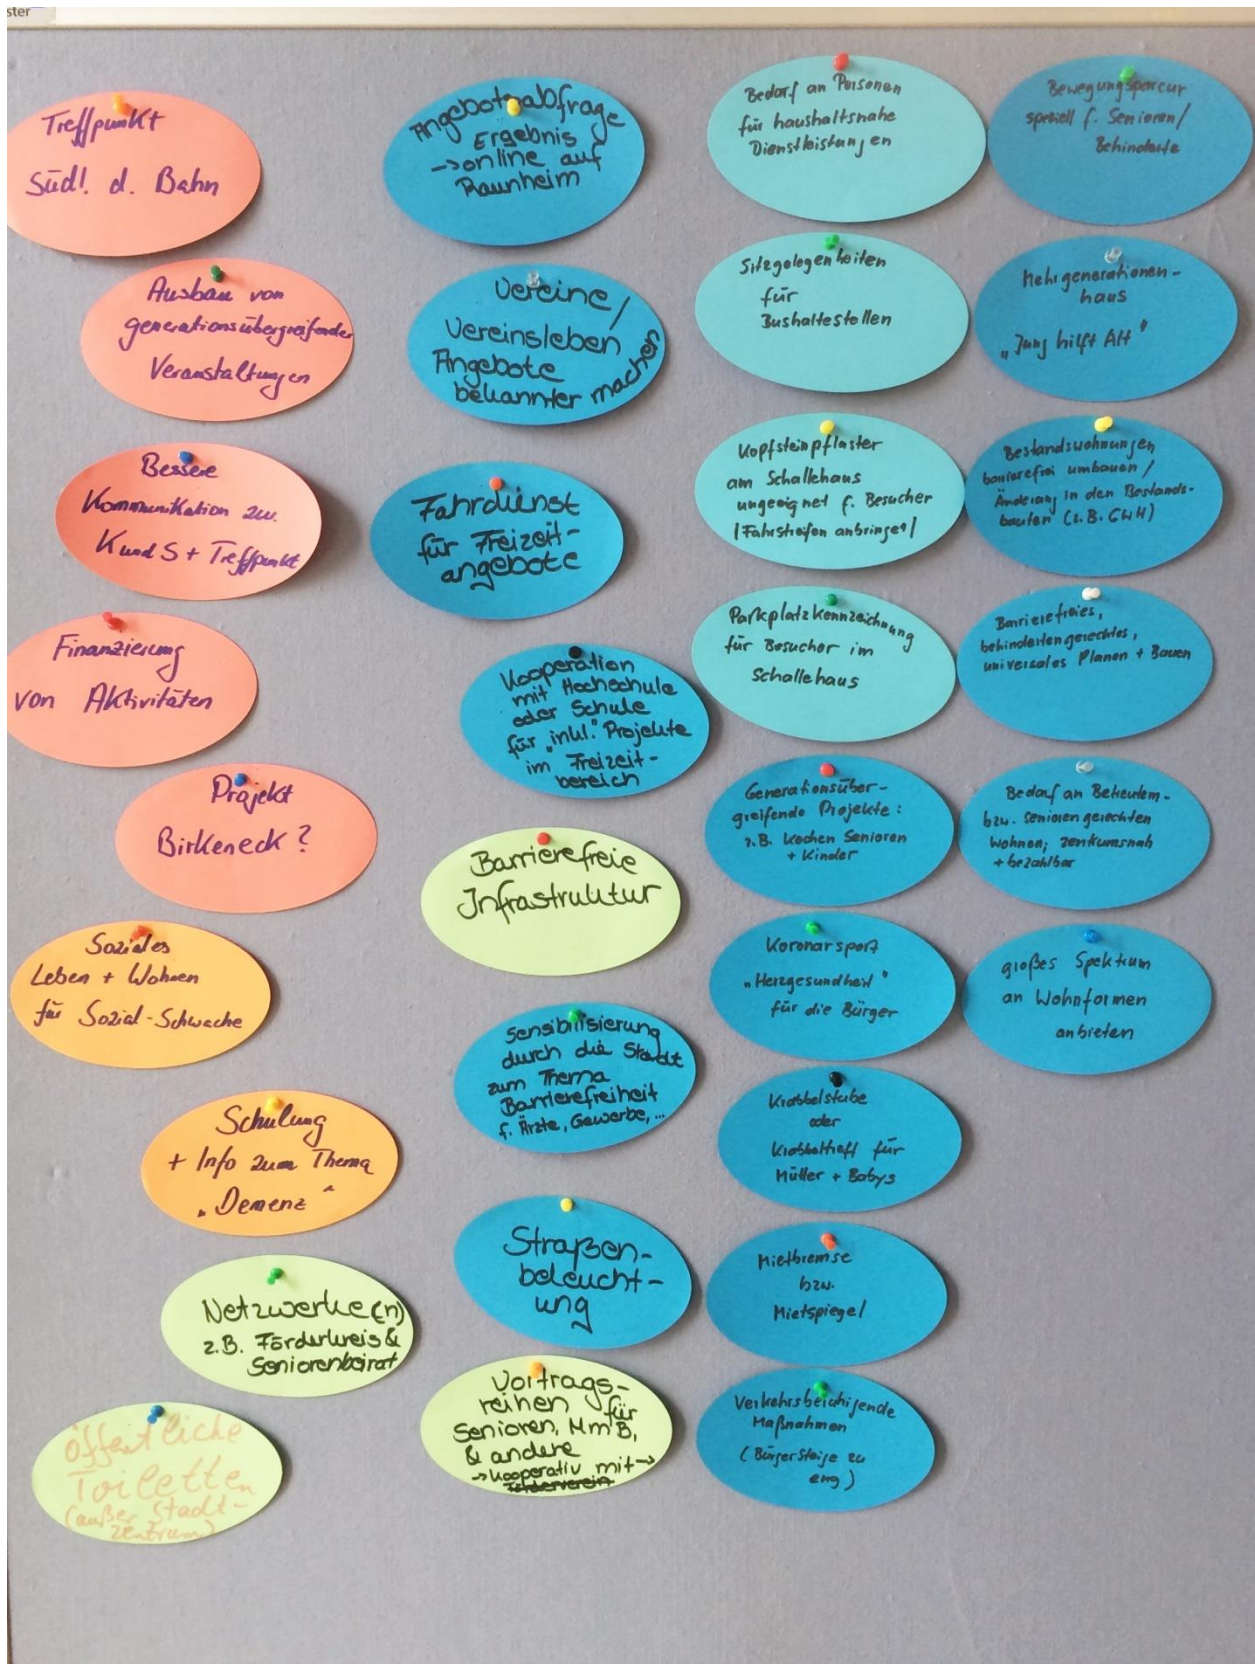 ster
Treffpunkt
Südl. d. Bahn
Ausbau von
generationsübergreifender
Veranstaltungen
Bessere
Kommunikation zw.
K und S + Treffpunkt
Finanzierung
von Aktivitäten
Projekt
Birkeneck?
Soziales
Leben + Wohnen
für Sozial-Schwache
Schulung
+ Info zum Thema
„Demenz“
Netzwerke(n)
z.B. Förderkreis &
Seniorenbeirat
öffentliche
Toiletten
(außer Stadt-
zentrum)
Angebotsabfrage
Ergebnis
→ online auf
Raunheim
Vereine/
Vereinsleben
Angebote
bekannter machen
Fahrdienst
für Freizeit-
angebote
Kooperation
mit Hochschule
oder Schule
für „inkl.“ Projekte
im Freizeit-
bereich
Barrierefreie
Infrastruktur
Sensibilisierung
durch die Stadt
zum Thema
Barrierefreiheit
f. Ärzte, Gewerbe, ...
Straßen-
beleucht-
ung
Vortrags-
reihen für
Senioren, MmB,
& andere
→ kooperativ mit →
Förderverein
Bedarf an Personen
für haushaltsnahe
Dienstleistungen
Sitzgelegenheiten
für
Bushaltestellen
Kopfsteinpflaster
am Schallehaus
ungeeignet f. Besucher
/Fahrstreifen anbringen/
Parkplatzkennzeichnung
für Besucher im
Schallehaus
Generationsüber-
greifende Projekte:
z.B. kochen Senioren
+ Kinder
Koronarsport
„Herzgesundheit“
für die Bürger
Krabbelstube
oder
Krabbeltreff für
Mütter + Babys
Mietbremse
bzw.
Mietspiegel
Verkehrsberuhigende
Maßnahmen
(Bürgersteige zu
eng)
Bewegungsparcur
speziell f. Senioren/
Behinderte
Mehrgenerationen-
haus
„Jung hilft Alt“
Bestandswohnungen
barrierefrei umbauen/
Änderung in den Bestands-
bauten (z.B. GWH)
Barrierefreies,
behindertengerechtes,
universales Planen + Bauen
Bedarf an Betreutem-
bzw. seniorengerechten
Wohnen; zentrumsnah
+ bezahlbar
großes Spektrum
an Wohnformen
anbieten